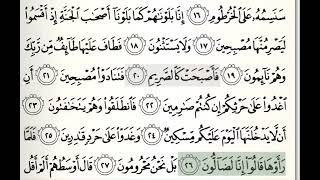 سَنَسِمُهُۥ عَلَى ٱلْخُرْطُومِ ١٦ إِنَّا بَلَوْنَٰهُمْ كَمَا بَلَوْنَآ أَصْحَٰبَ ٱلْجَنَّةِ إِذْ أَقْسَمُوا۟
لَيَصْرِمُنَّهَا مُصْبِحِينَ ١٧ وَلَا يَسْتَثْنُونَ ١٨ فَطَافَ عَلَيْهَا طَآئِفٌ مِّن رَّبِّكَ
وَهُمْ نَآئِمُونَ ١٩ فَأَصْبَحَتْ كَٱلصَّرِيمِ ٢٠ فَتَنَادَوْا۟ مُصْبِحِينَ ٢١
أَنِ ٱغْدُوا۟ عَلَىٰ حَرْثِكُمْ إِن كُنتُمْ صَٰرِمِينَ ٢٢ فَٱنطَلَقُوا۟ وَهُمْ يَتَخَٰفَتُونَ ٢٣
أَن لَّا يَدْخُلَنَّهَا ٱلْيَوْمَ عَلَيْكُم مِّسْكِينٌ ٢٤ وَغَدَوْا۟ عَلَىٰ حَرْدٍ قَٰدِرِينَ ٢٥ فَلَمَّا
رَأَوْهَا قَالُوٓا۟ إِنَّا لَضَآلُّونَ ٢٦ بَلْ نَحْنُ مَحْرُومُونَ ٢٧ قَالَ أَوْسَطُهُمْ أَلَمْ أَقُل